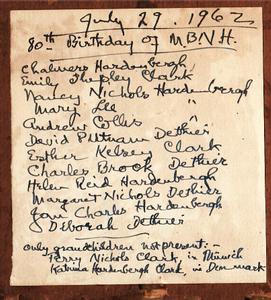 July 29. 1962
80th Birthday of M.B.N.H.
Chalmers Hardenbergh
Emily Shepley Clark
Nancy Nichols Hardenbergh
Mary Lee "
Andrew Collis
David Putnam Dethier
Esther Kelsey Clark
Charles Brook Dethier
Helen Reid Hardenbergh
Margaret Nichols Dethier
Charles Hardenbergh
Deborah Dethier
only grandchildren not present:-
Perry Nichols Clark, in Munich
Katrina Hardenbergh Clark, in Denmark